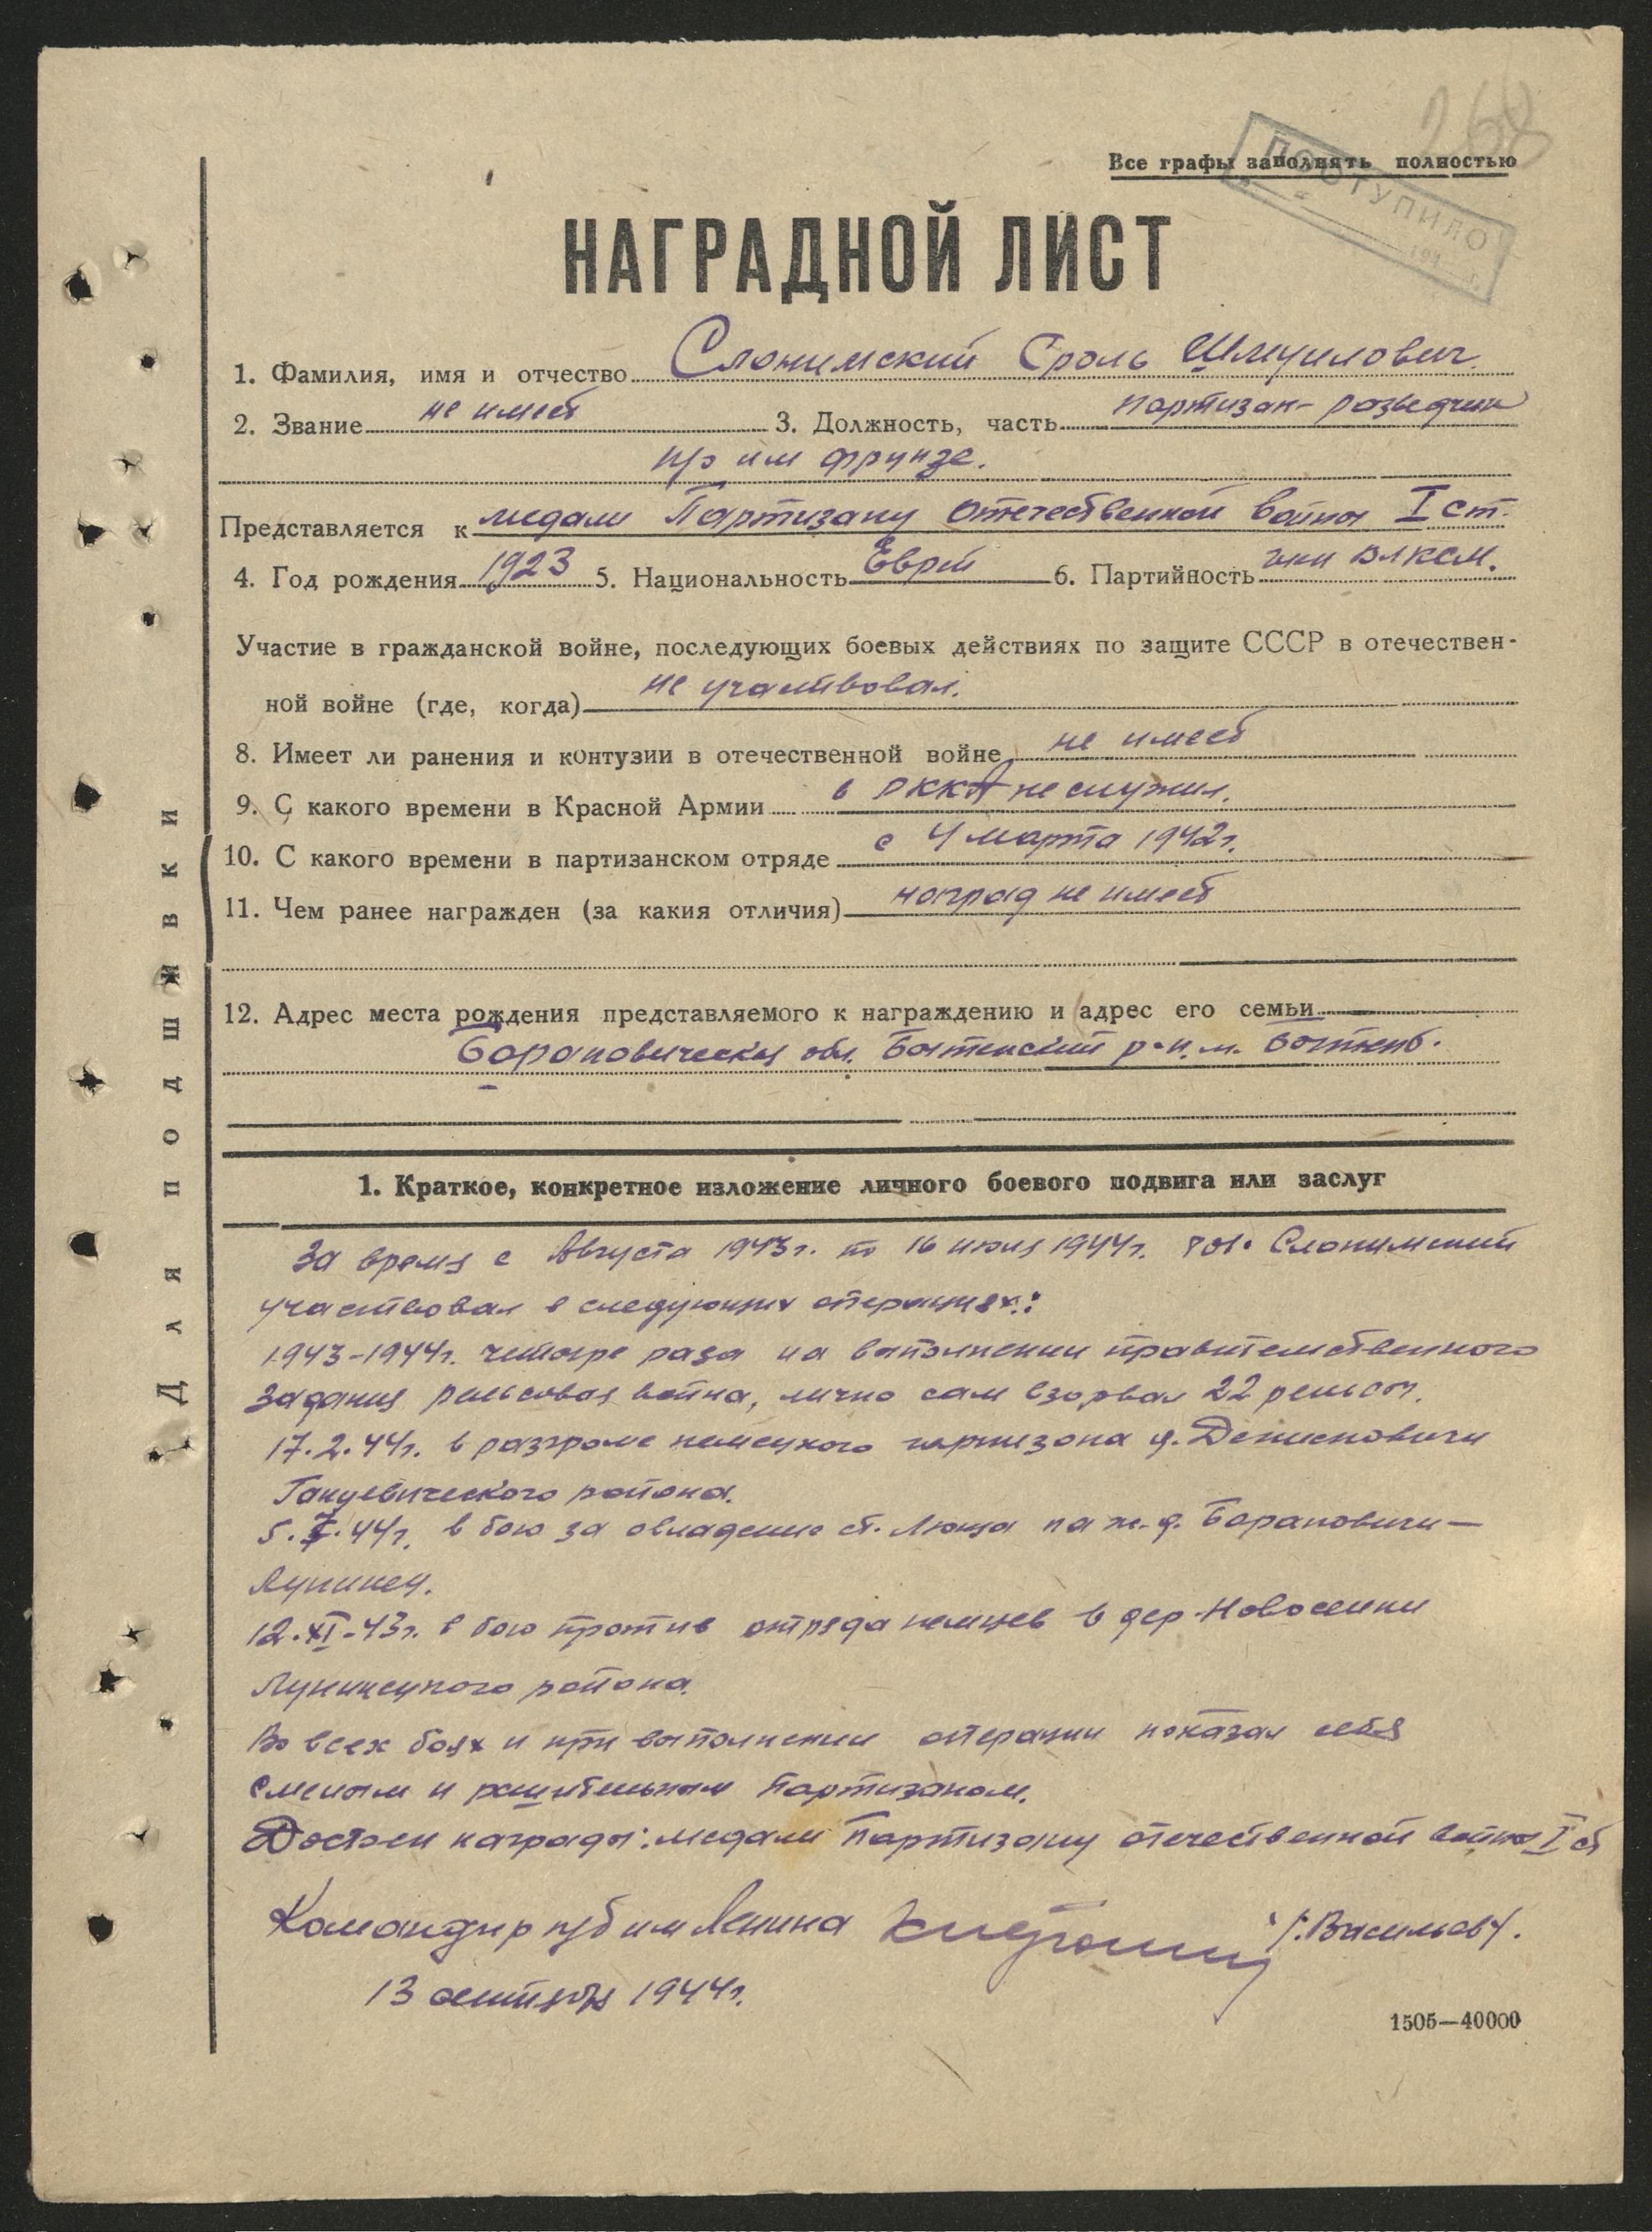 268
Все графы заполнять полностью
ПОСТУПИЛО
194 г.
НАГРАДНОЙ ЛИСТ
1. Фамилия, имя и отчество Слонимский Сроль Шмуилович.
2. Звание не имеет 3. Должность, часть партизан-разведчик
п/о им Фрунзе.
Представляется к медали Партизану Отечественной войны I ст.
4. Год рождения 1923 5. Национальность Еврей 6. Партийность член ВЛКСМ.
Участие в гражданской войне, последующих боевых действиях по защите СССР в отечествен-
ной войне (где, когда) не участвовал.
8. Имеет ли ранения и контузии в отечественной войне не имеет
9. С какого времени в Красной Армии в РККА не служил.
10. С какого времени в партизанском отряде с 4 марта 1942г.
11. Чем ранее награжден (за какия отличия) наград не имеет
12. Адрес места рождения представляемого к награждению и адрес его семьи
Барановическая обл. Бытенский р-н, м. Бытень.
1. Краткое, конкретное изложение личного боевого подвига или заслуг
За время с Августа 1943г. по 16 июля 1944г. тов. Слонимский
участвовал в следующих операциях:
1943-1944г. четыре раза на выполнении правительственного
задания рельсовая война, лично сам взорвал 22 рельсы.
17.2.44г. в разгроме немецкого гарнизона д. Денисковичи
Ганцевического района.
5. .44г. в бою за овладение ст. Люща на ж.д. Барановичи—
Лунинец.
12.XI-43г. в бою против отряда немцев в дер. Новоселки
Лунинецкого района.
Во всех боях и при выполнении операции показал себя
смелым и решительным партизаном.
Достоен награды: медали Партизану отечественной войны I ст
Командир п/б им Ленина /Васильев/.
13 сентября 1944г.
1505—40000
Для подшивки